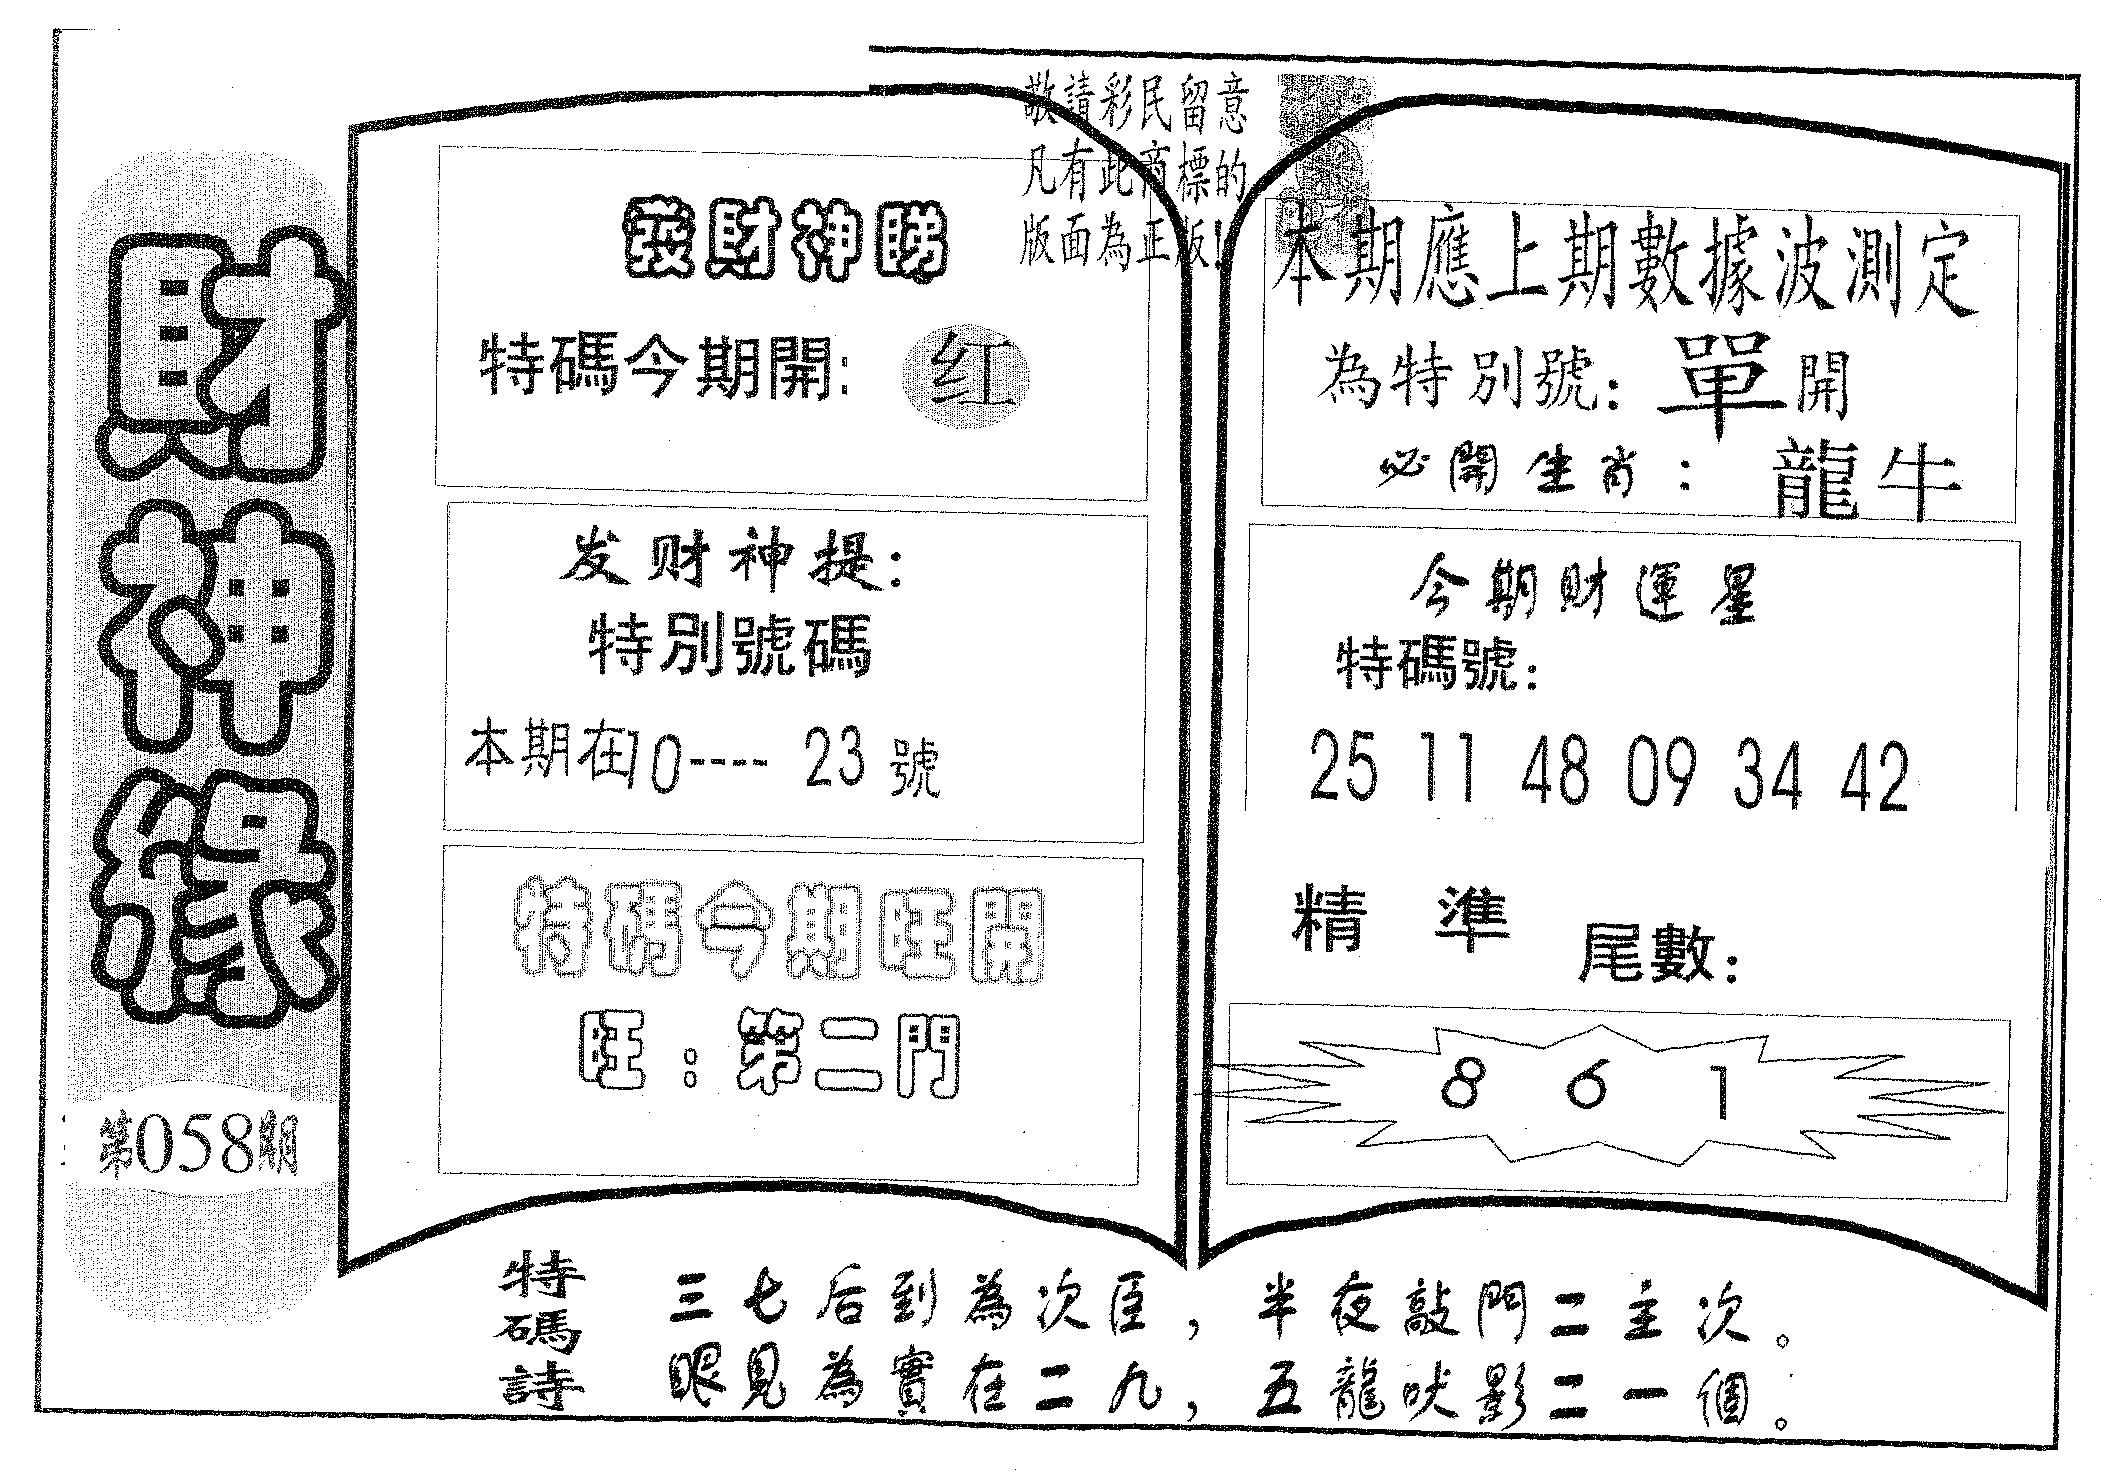 財神緣
第058期
敬請彩民留意
凡有此商標的
版面為正版!
發財神睇
特碼今期開:红
发财神提:
特別號碼
本期在10----23號
特碼今期旺開
旺:第二門
本期應上期數據波測定
為特別號:單開
必開生肖:龍牛
今期財運星
特碼號:
25 11 48 09 34 42
精準尾數:
8 6 1
特碼詩
三七后到為次臣,半夜敲門二主次。
眼見為實在二九,五龍吠影二一個。